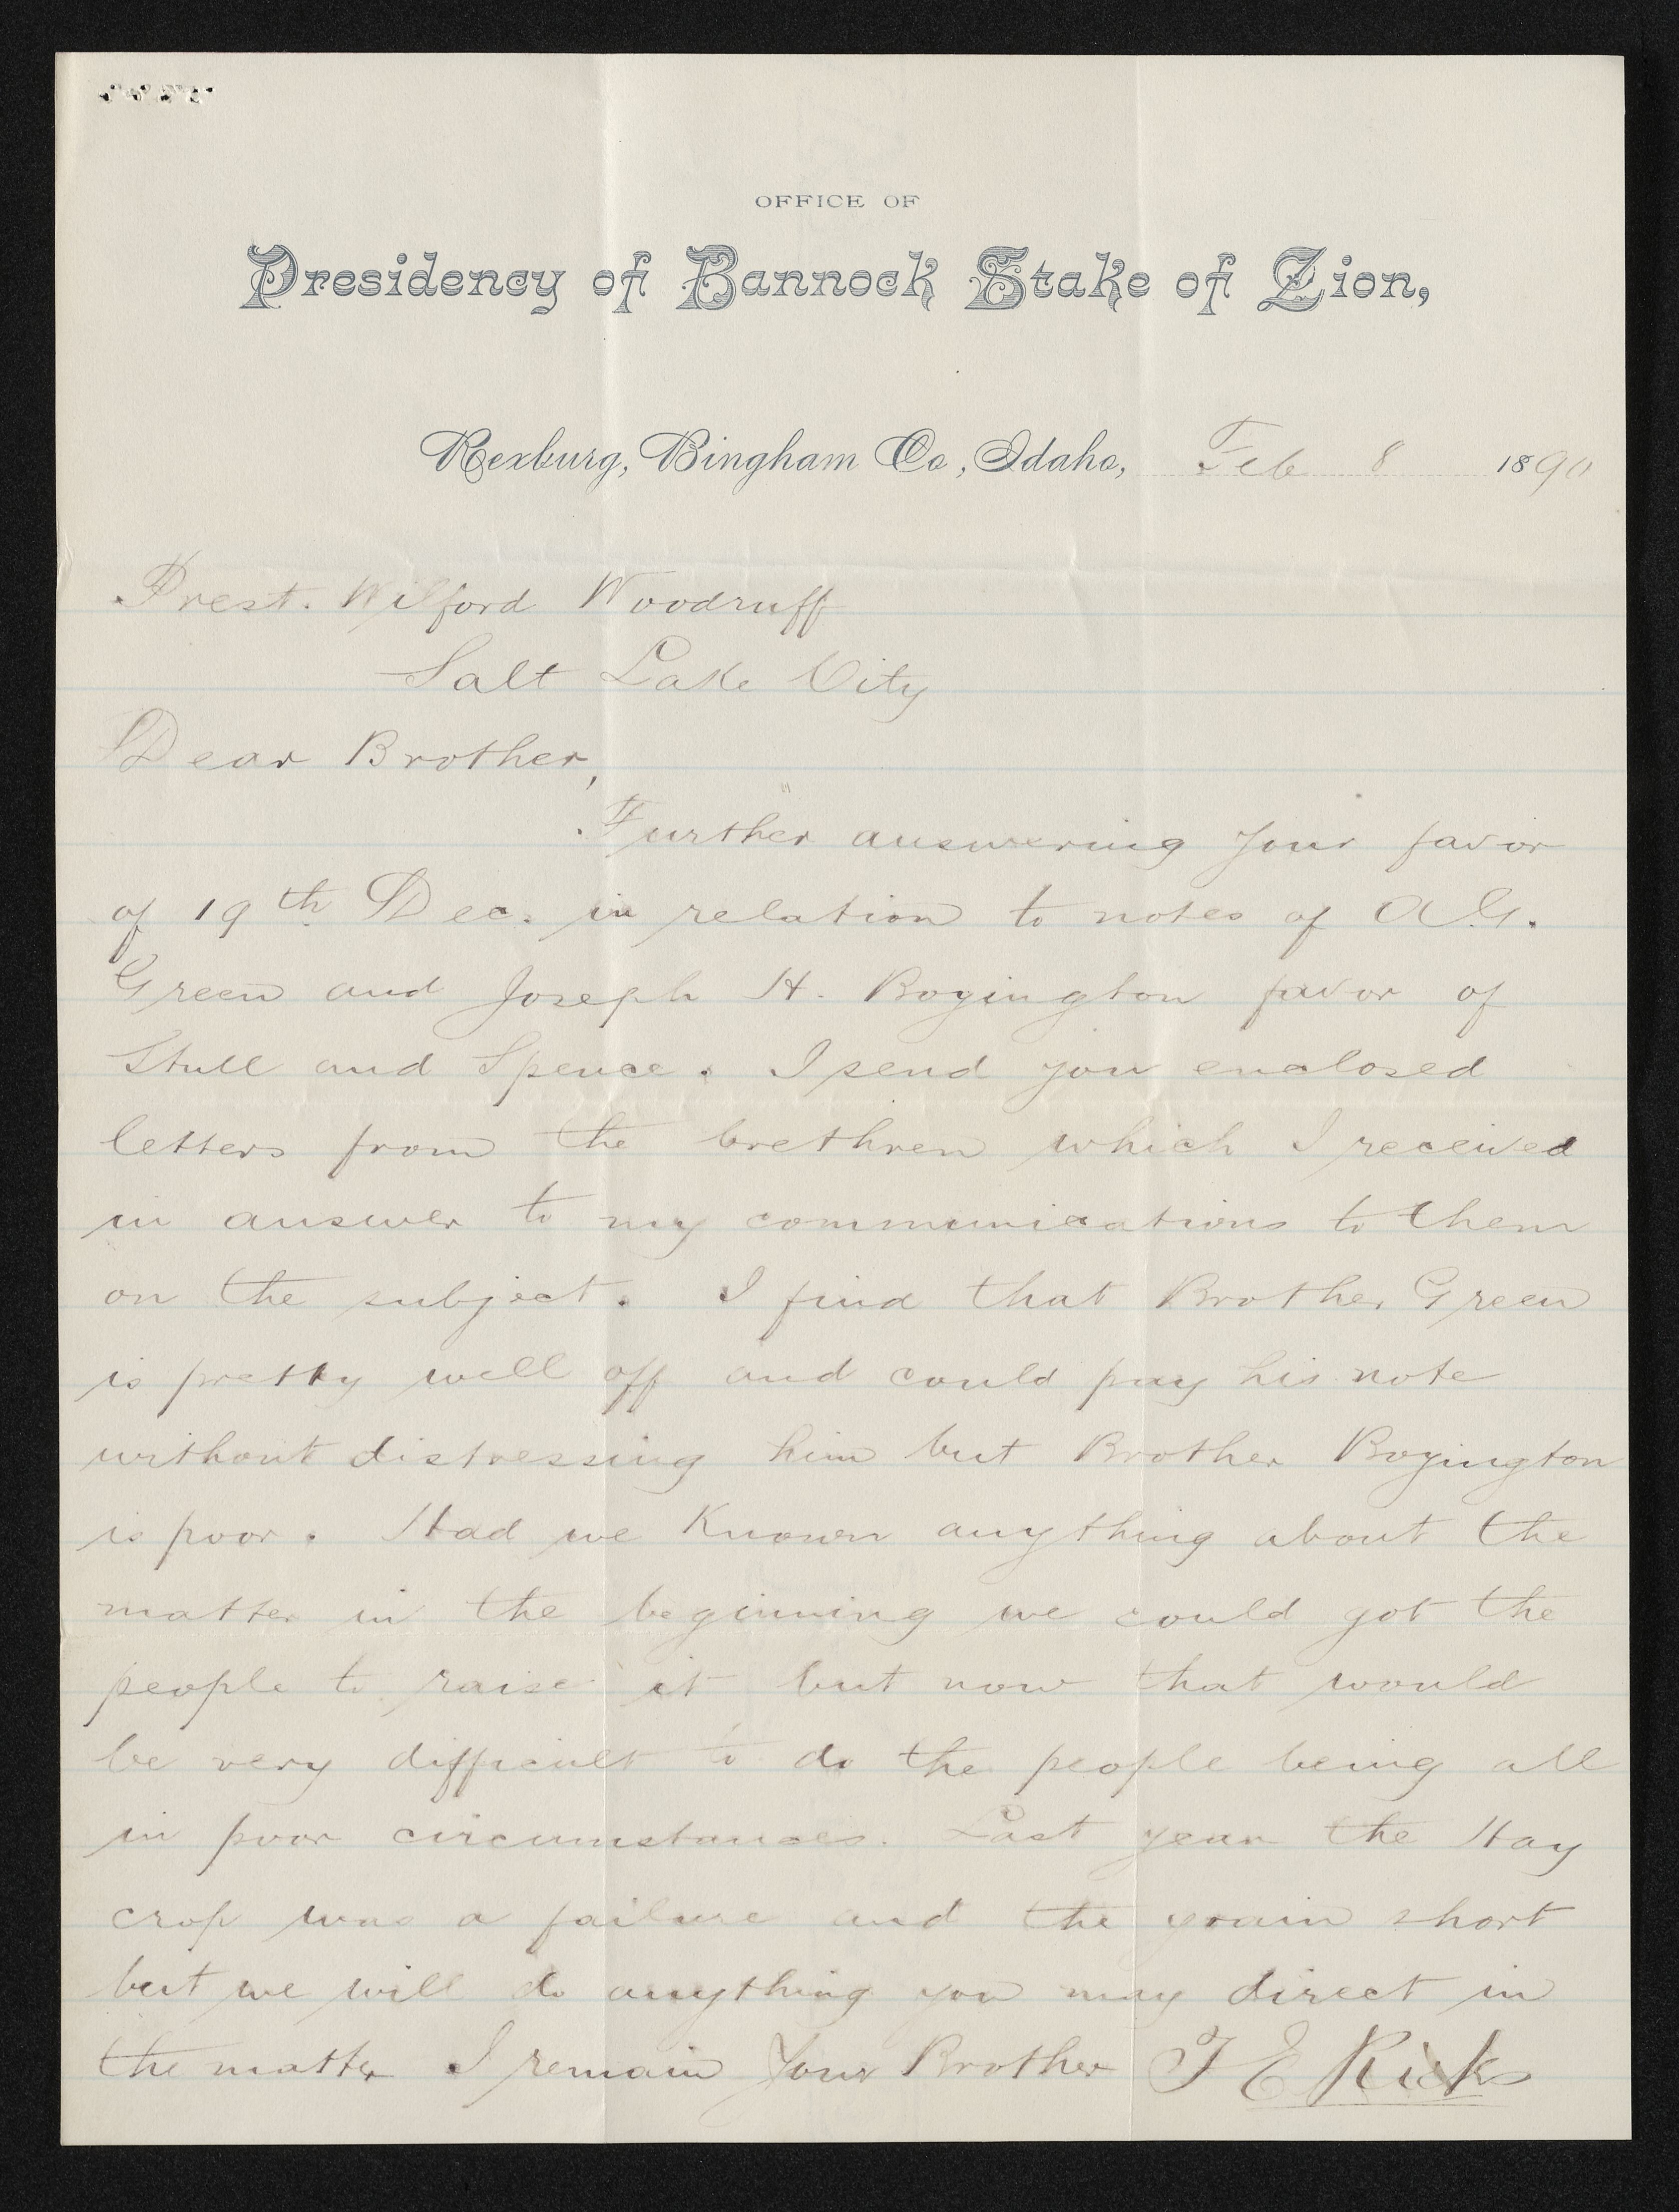 OFFICE OF
Presidency of Bannock Stake of Zion,
Rexburg, Bingham Co., Idaho, Feb 8 1890
Prest. Wilford Woodruff
Salt Lake City
Dear Brother,
Further answering your favor
of 19th Dec. in relation to notes of A.G.
Green and Joseph H. Boyington favor of
Stull and Spence. I send you enclosed
letters from the brethren which I received
in answer to my communications to them
on the subject. I find that Brother Green
is pretty well off and could pay his note
without distressing him but Brother Boyington
is poor. Had we Known anything about the
matter in the beginning we could got the
people to raise it but now that would
be very difficult to do the people being all
in poor circumstances. Last year the Hay
crop was a failure and the grain short
but we will do anything you may direct in
the matter I remain Your Brother T E Ricks